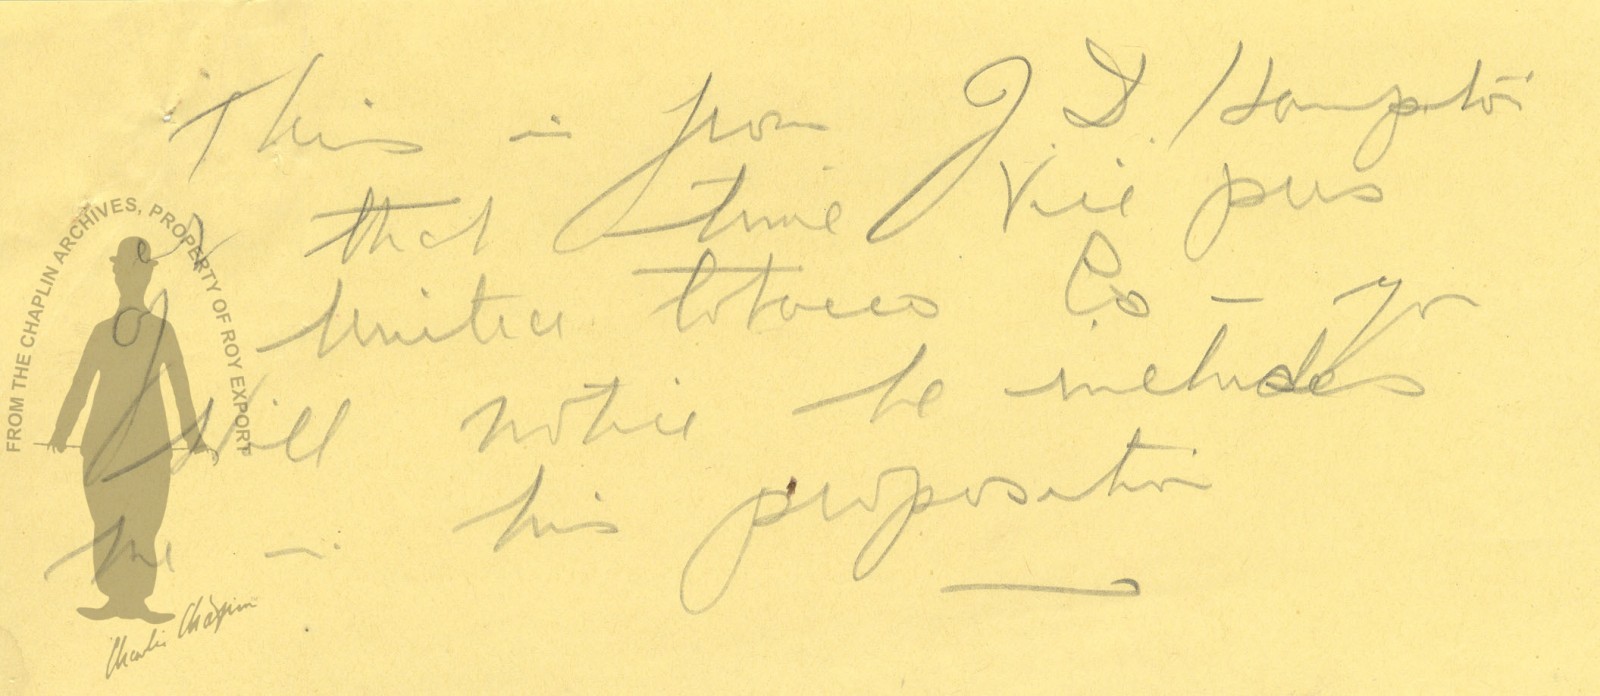 This is from J. D. Hampton
at that time Vice pres
of United Tobacco Co - You
will notice he includes
me in his proposition
FROM THE CHAPLIN ARCHIVES, PROPERTY OF ROY EXPORT
Charlie Chaplin